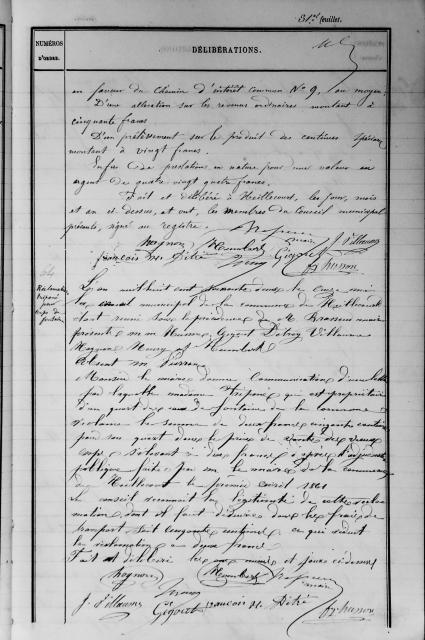 31me feuillet.
NUMÉROS
D'ORDRE.
DÉLIBÉRATIONS.
en faveur du chemin d'intérêt commun No 9, au moyen
D'une allocation sur les revenus ordinaires montant à
cinquante francs
D'un prélèvement sur le produit des centimes spéciaux
montant à vingt francs.
Enfin de prestation en nature pour une valeur en
argent de quatre vingt quatre francs.
Fait et délibéré à Heillecourt, les jour, mois
et an ci-dessus, et ont, les membres du Conseil municipal
présents, signé au registre.
maire
Hognon Humbert J. Villaume
françois M. Détré Gigout Husson
64
L'an mil huit cent soixante deux le onze mai
le conseil municipal de la commune de Heillecourt
étant réuni sous la présidence de M. maire
présents m m Husson Gigout Détrey Villaume
Hognon et Humbert
Absent m
Monsieur le maire donne communication d'une lettre
par laquelle madame qui est propriétaire
d'un quart de fontaine de la commune
réclame la somme de deux francs cinquante centimes
pour son quart dans le prix de vente des vieux
corps s'élevant à dix francs d'après l'adjudication
publique faite par m le maire de la commune
de Heillecourt le premier avril 1861
Le conseil reconnait la légitimité de cette récla
mation, dont il faut déduire dans les frais de
transport soit cinquante centimes ce qui réduit
la réclamation à deux francs
Fait et délibéré les an mois et jours ci-dessus
Hognon Humbert
maire
J. Villaume Gigout françois M. Détré Husson